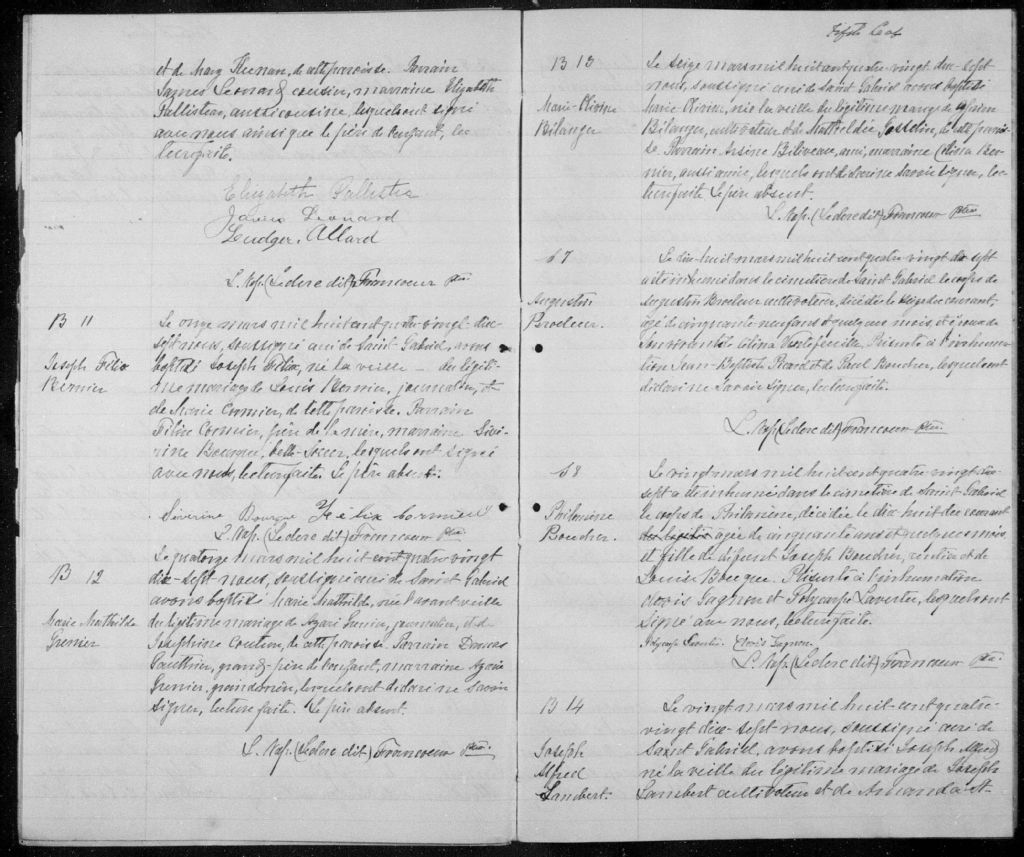 et de Mary Keenan, de cette paroisse. Parrain
James Leonard cousin, marraine Elizabeth
Pallister, aussi cousine, lesquels ont signé
avec nous ainsi que le père de l'enfant, lec
ture faite.
Elizabeth Pallister
James Leonard
Ludger Allard
L. Nap. (Leclerc dit) Francoeur Ptre.
B 11
Joseph Félix
Bernier
Le onze mars mil huit cent quatre vingt dix-
sept nous, soussigné curé de Saint Gabriel, avons
baptisé Joseph Félix, né la veille du légiti-
me mariage de Louis Bernier, journalier, et
de Marie Cormier, de cette paroisse. Parrain
Félix Cormier, père de la mère, marraine Sévé-
rine Bourque, belle-soeur, lesquels ont signé
avec nous, lecture faite. Le père absent.
Séverine Bourque Félix Cormier
L. Nap. (Leclerc dit) Francoeur Ptre.
B 12
Marie Mathilde
Grenier
Le quatorze mars mil huit cent quatre vingt
dix-sept nous, soussigné curé de Saint Gabriel
avons baptisé Marie Mathilde, née l'avant veille
du légitime mariage de Azarie Grenier, journalier, et de
Josephine Couture, de cette paroisse. Parrain
Gauthier, grand-père de l'enfant, marraine
Grenier, grand'mère, lesquels ont déclaré ne savoir
signer, lecture faite. Le père absent.
L. Nap. (Leclerc dit) Francoeur Ptre.
Fifth Leaf
B 13
Marie Olivine
Bélanger
Le seize mars mil huit cent quatre vingt dix-sept
nous, soussigné curé de Saint Gabriel avons baptisé
Marie Olivine, née la veille du légitime mariage de
Bélanger, cultivateur et de Mathilde Gosselin, de cette parois-
se. Parrain Arsène Béliveau, ami, marraine Célina Ber-
nier, aussi amie, lesquels ont déclaré ne savoir signer, lec
ture faite Le père absent.
L. Nap. (Leclerc dit) Francoeur Ptre.
67
Augustin
Brodeur.
Le dix-huit mars mil huit cent quatre vingt dix sept
a été inhumé dans le cimetière de Saint Gabriel le corps de
Augustin Brodeur cultivateur, décédé le seize du courant
agé de cinquante neuf ans et quelques mois, et époux de
survivante Célina Vertefeuille. Présents à l'inhuma-
tion Jean-Baptiste Picard et Paul Boucher, lesquels ont
déclaré ne savoir signer, lecture faite.
L. Nap. (Leclerc dit) Francoeur Ptre.
68
Philomène
Boucher.
Le vingt mars mil huit cent quatre vingt dix
sept a été inhumé dans le cimetière de Saint Gabriel
le corps de Philomène, décédée le dix-huit du courant
agée de cinquante ans et quelques mois,
et fille de défunt Joseph Boucher, rentier et de
Louise Bocque. Présents à l'inhumation
Clovis Gagnon et Polycarpe Laverter, lesquels ont
signé avec nous, lecture faite.
Clovis Gagnon
L. Nap. (Leclerc dit) Francoeur Ptre.
B 14
Joseph
Alfred
Lambert.
Le vingt mars mil huit cent quatre-
vingt dix-sept nous, soussigné curé de
Saint Gabriel, avons baptisé Joseph Alfred
né la veille du légitime mariage de Joseph
Lambert cultivateur et de Amanda St-